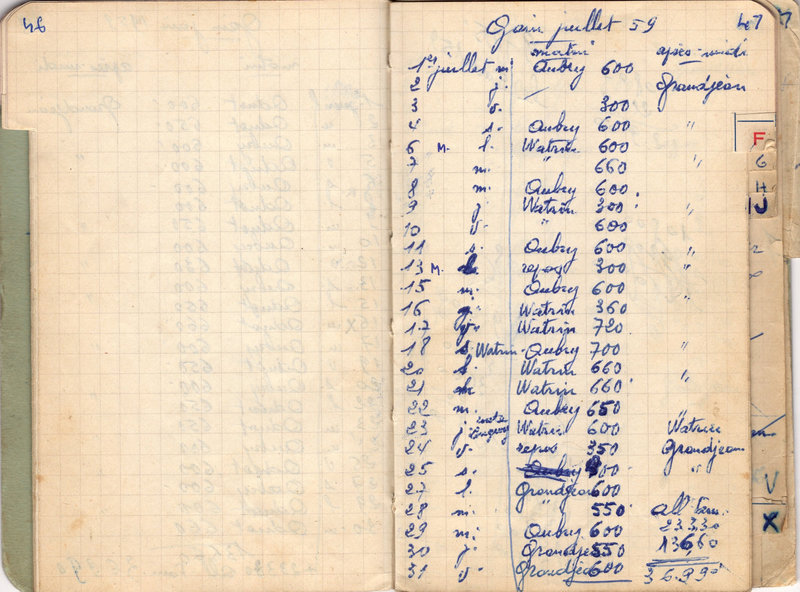 46
47
Gain juillet 59
matin après-midi
1er juillet m. Aubry 600
2 j. Grandjean
3 v. 300
4 s. Aubry 600 "
6 M. l. Watrin 600
7 m. " 660 "
8 m. Aubry 600
9 j. Watrin 300 "
10 v. " 600
11 s. Aubry 600 "
13 M. repos 300 "
15 m. Aubry 600 "
16 j. Watrin 360
17 v. Watrin 720
18 s. Watrin Aubry 700 "
20 l. Watrin 660
21 Watrin 660 "
22 m. Aubry 650
23 j. Watrin 600 Watrin
24 v. repos 350 Grandjean
25 s. Aubry 600 "
27 l. Grandjean 600
28 m. 550 all fam.
29 m. Aubry 600 23330
30 j. Grandjean 550 13660
31 v. Grandjean 600 36.990
F
G
H
IJ
V
X